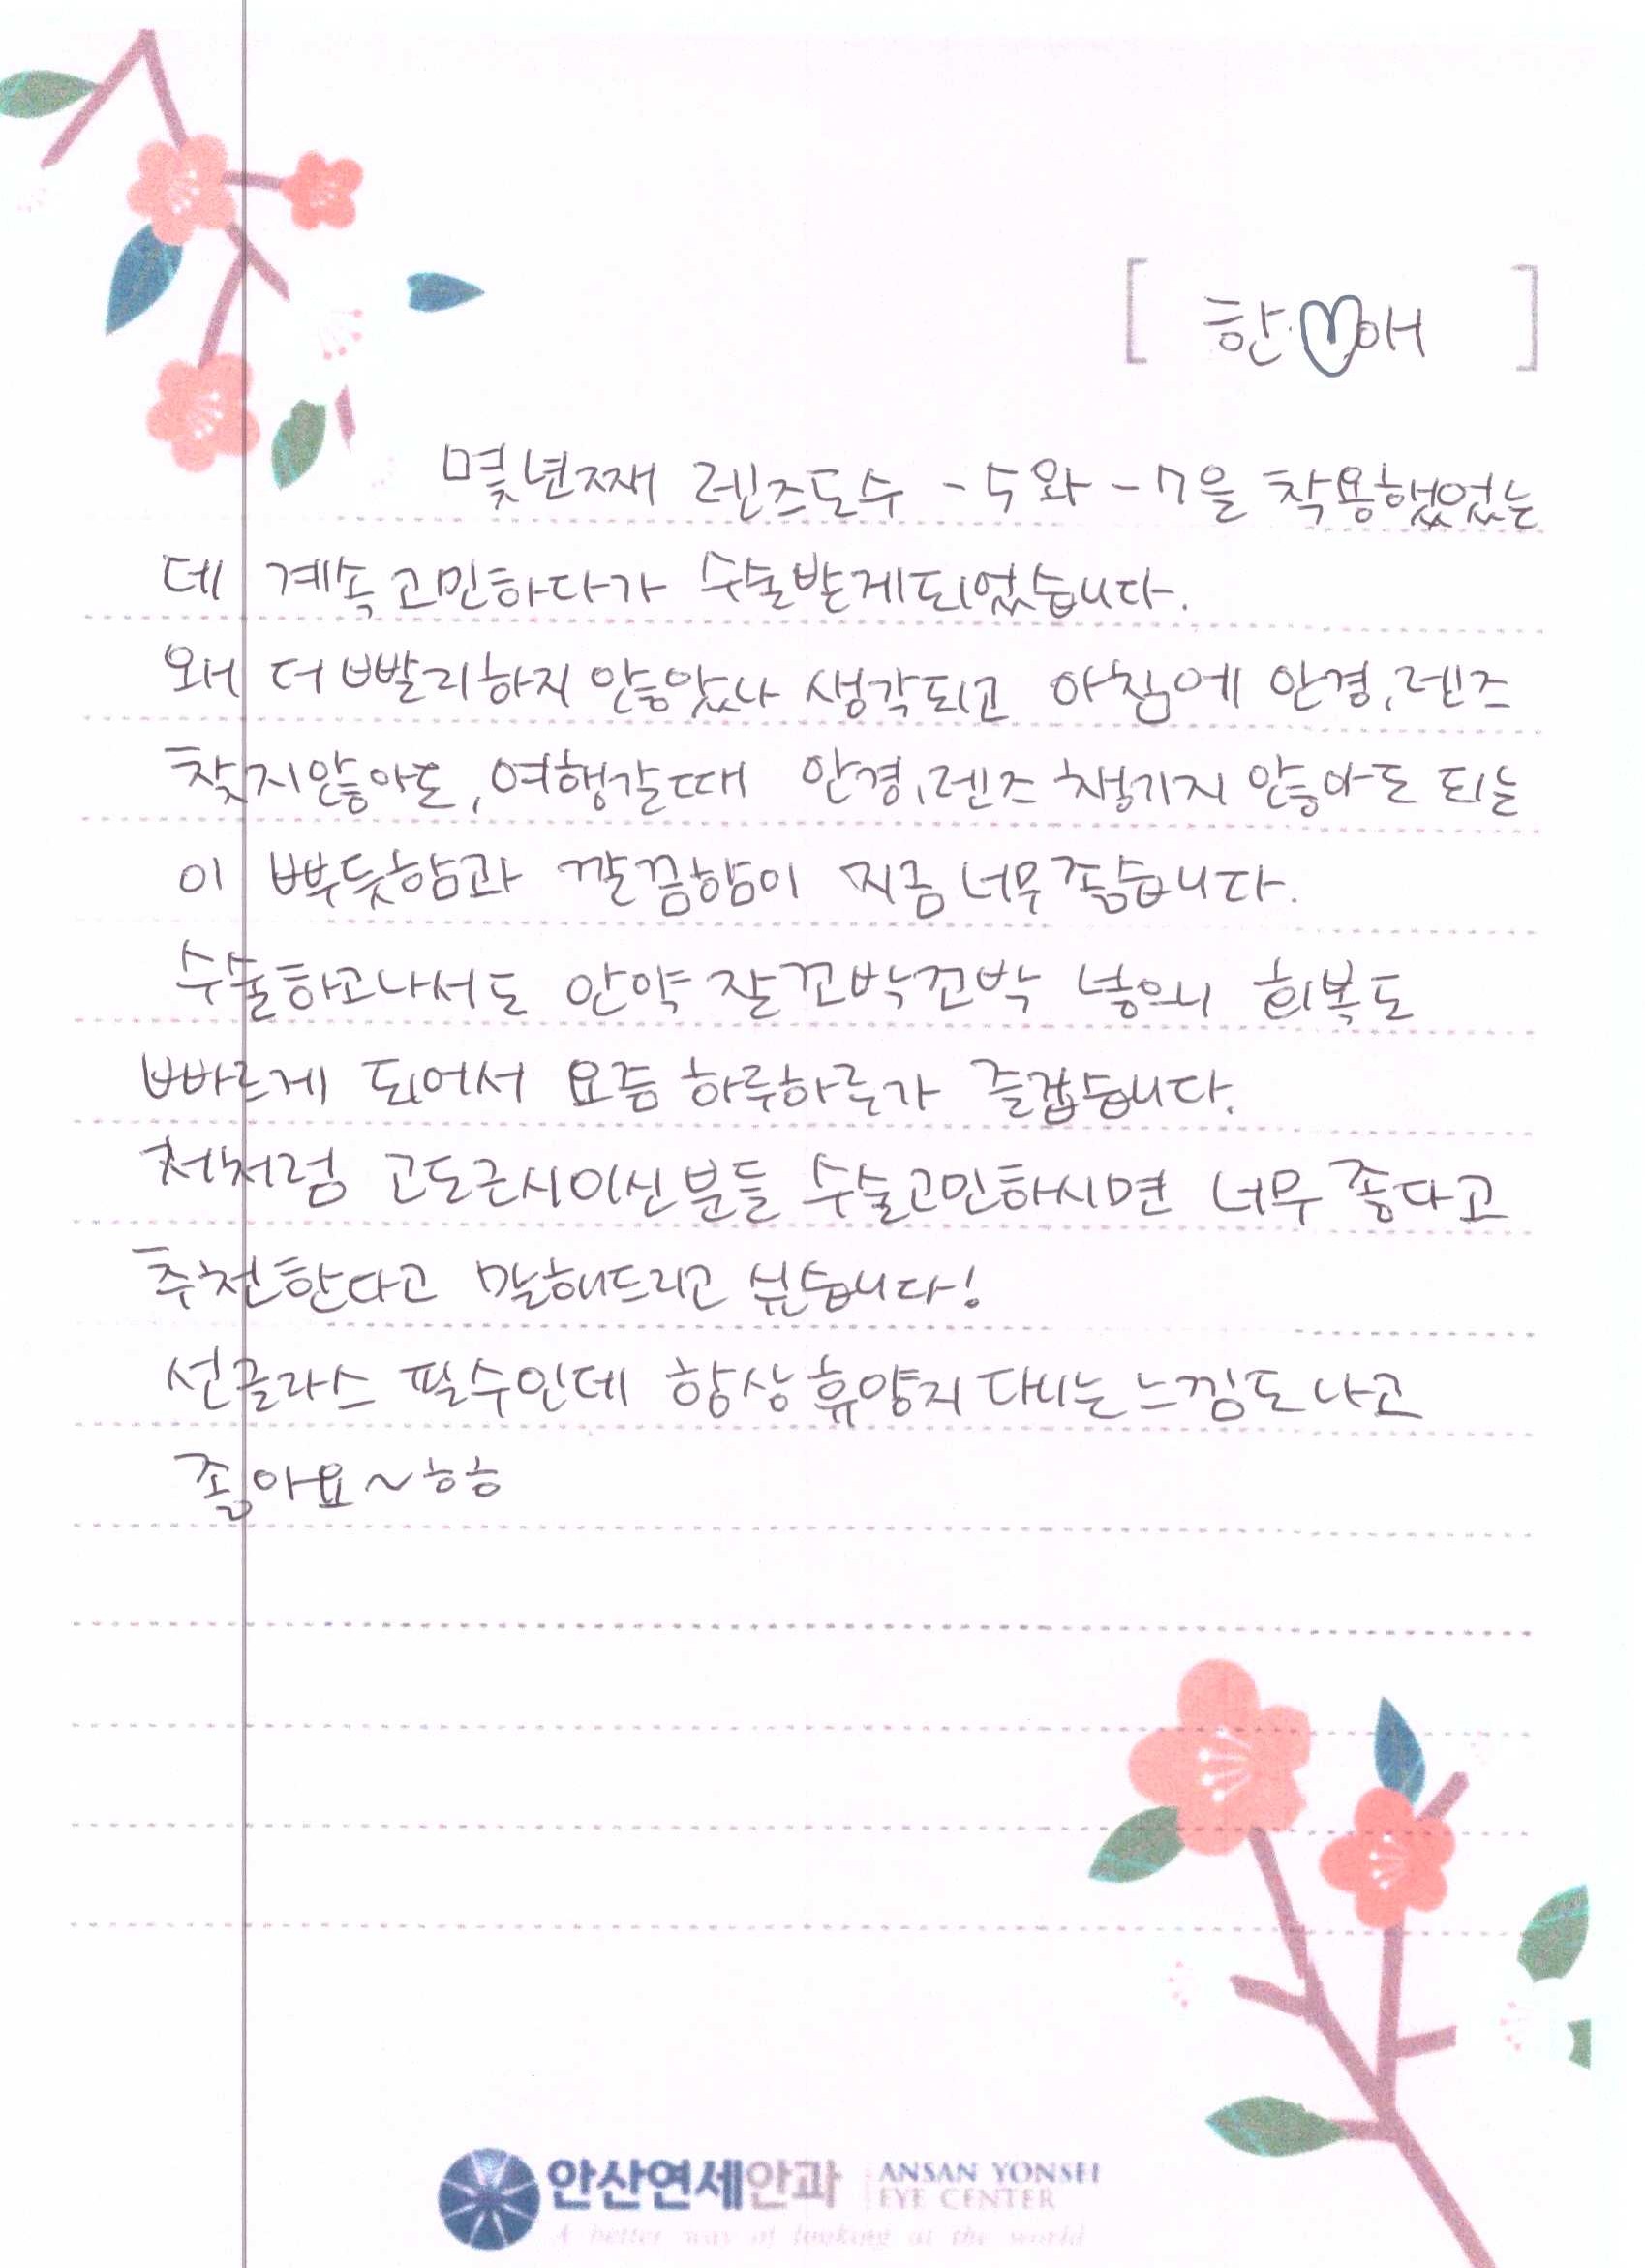 [ 한♡애 ]
몇년째 렌즈도수 -5와 -7을 착용했었는
데 계속 고민하다가 수술받게되었습니다.
왜 더 빨리하지 않았나 생각되고 아침에 안경,렌즈
찾지않아도, 여행갈때 안경,렌즈 챙기지 않아도 되는
이 뿌듯함과 깔끔함이 지금 너무좋습니다.
수술하고나서도 안약 잘꼬박꼬박 넣으니 회복도
빠르게 되어서 요즘 하루하루가 즐겁습니다.
저처럼 고도근시이신분들 수술고민하시면 너무 좋다고
추천한다고 말해드리고 싶습니다!
선글라스 필수인데 항상 휴양지 다니는 느낌도 나고
좋아요~ㅎㅎ
안산연세안과 ANSAN YONSEI
EYE CENTER
A better way of looking at the world